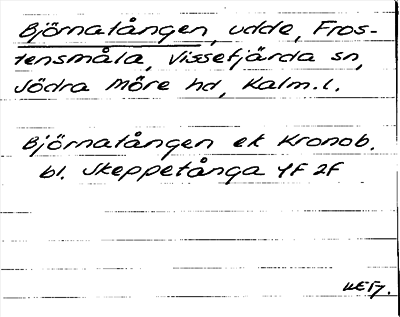 Björnatången, udde, Fros-
tensmåla, Vissefjärda sn,
Södra Möre hd, Kalm. l.
Björnatången ek Kronob.
bl. Skeppetånga 4F 2F